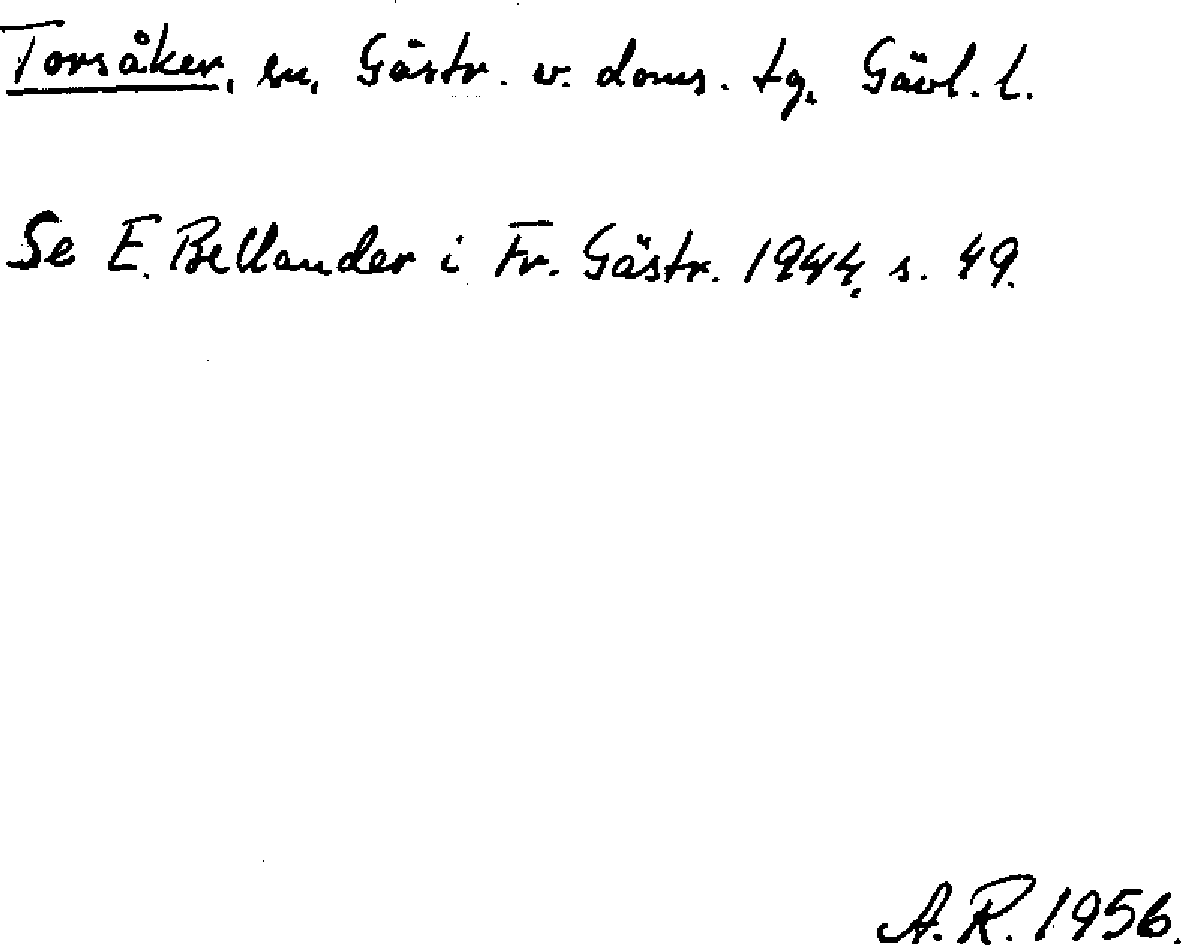 Torsåker, sn, Gästr. v. doms. tg, Gävl. l.
Se E. Bellander i Fr. Gästr. 1944, s. 49.
A. R. 1956.